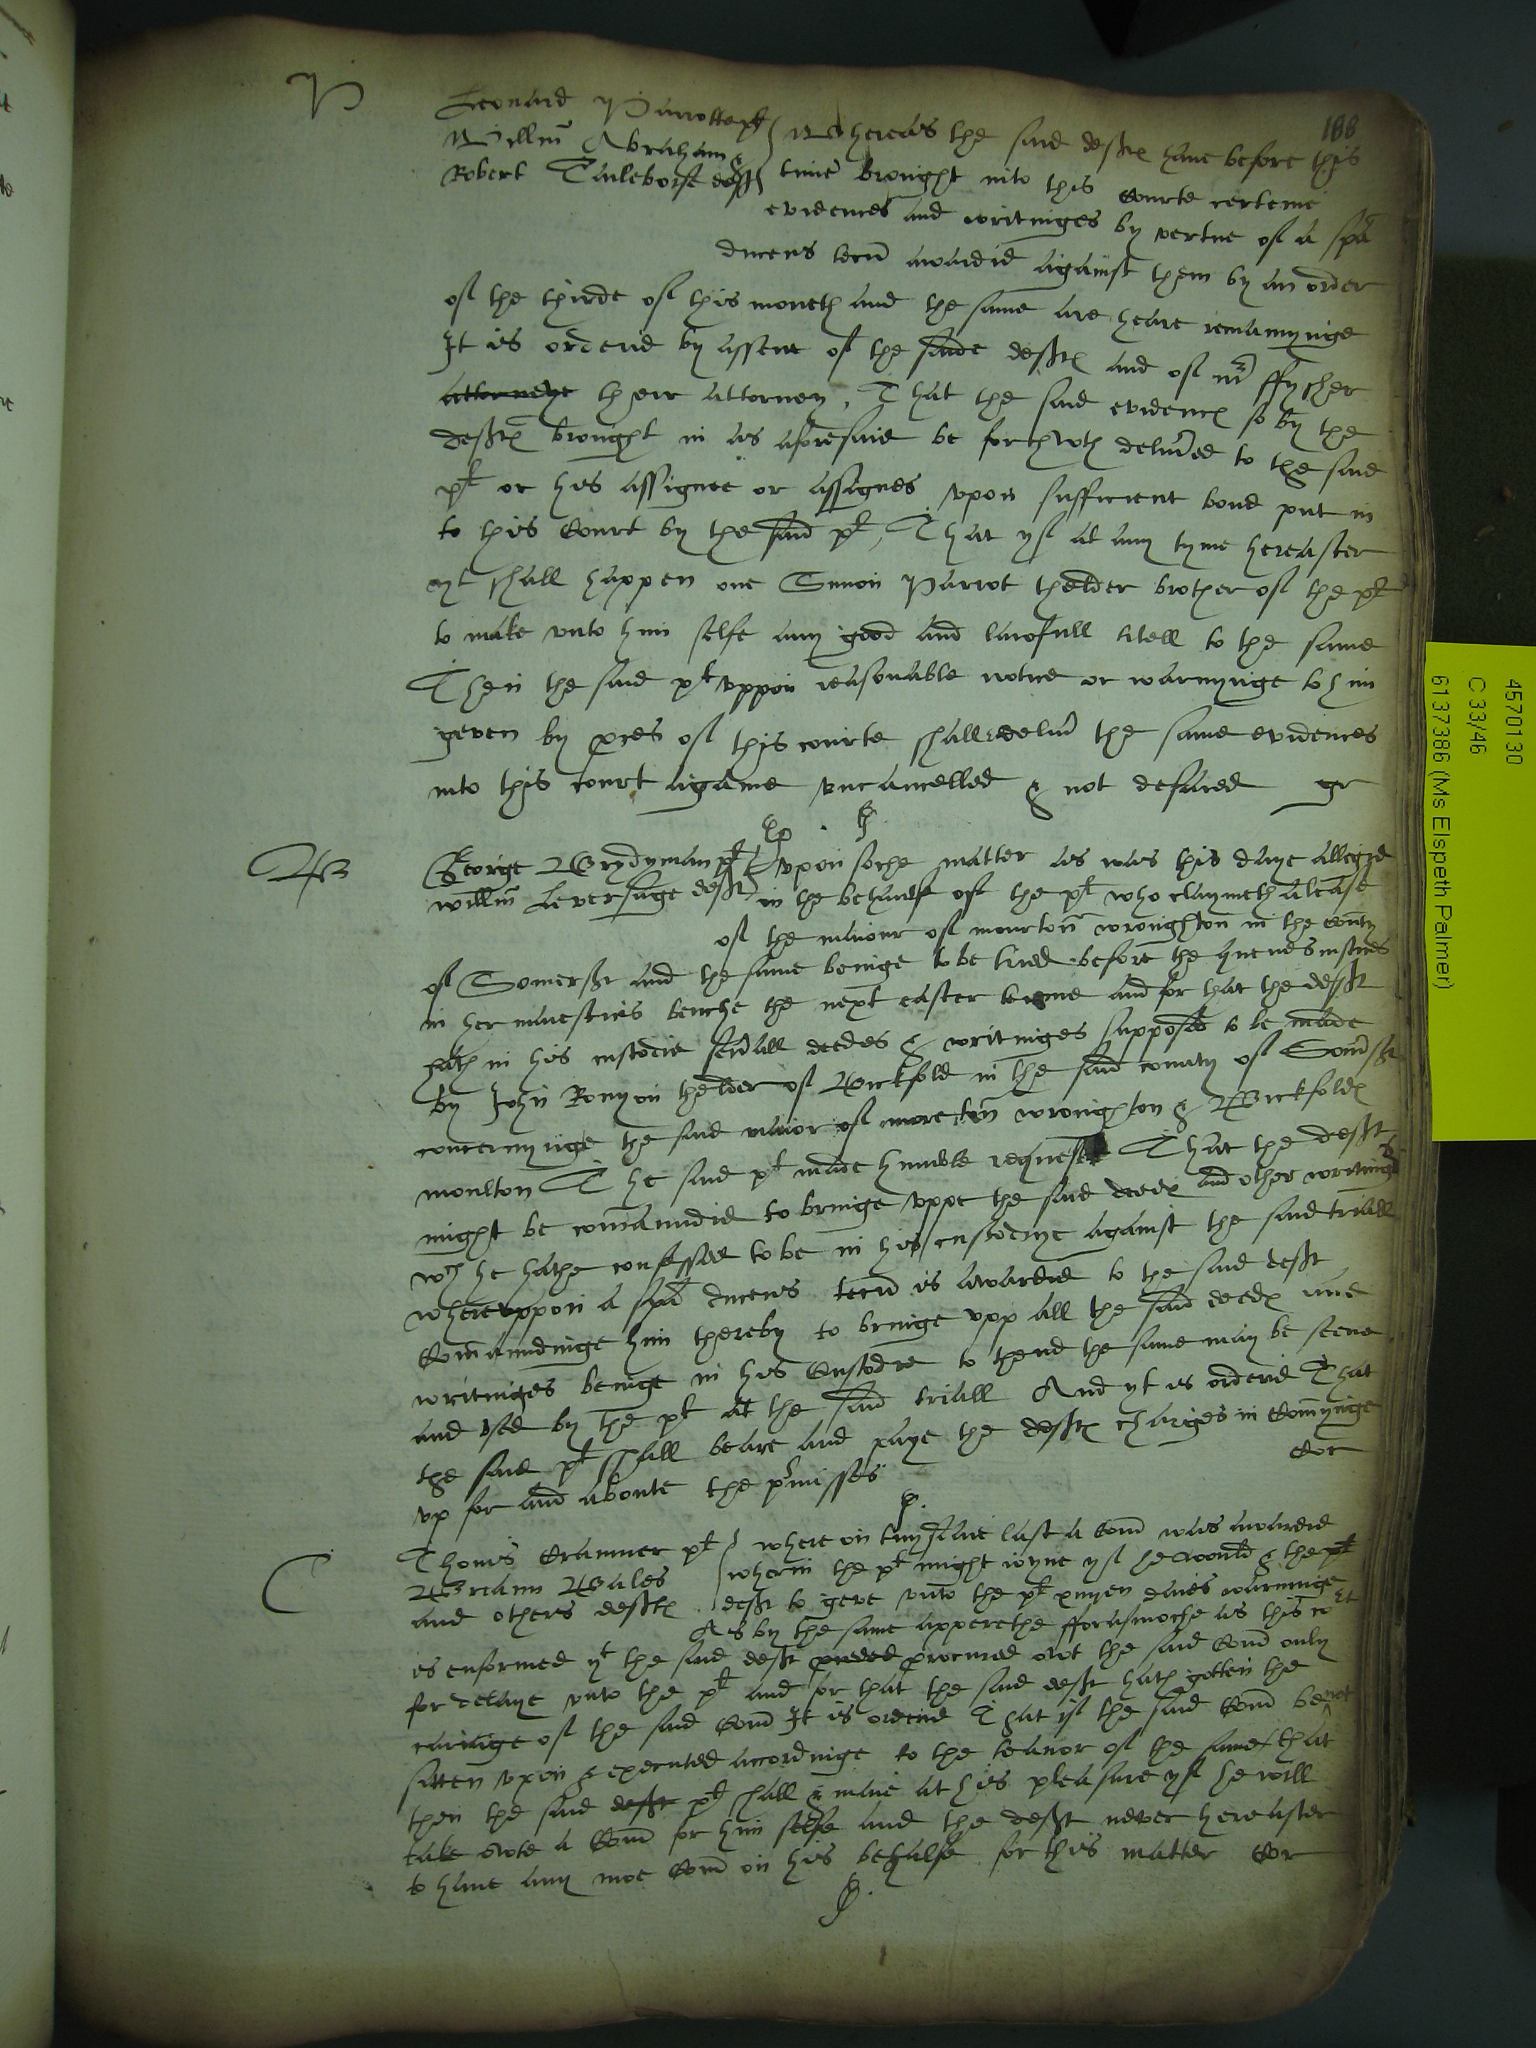 188
P
Leonard Parrotte plt
Willm Abraham &
Robert Taileborse defts
Whereas the said deftes have before this
time brought into this Courte certeine
evidences and writinges by vertue of a spa
ducens tecu awardid against them by an order
of the thirde of this moneth and the same are heare remaynynge
It is ordered by assent of the saide deftes and of mr ffyssher
attorneye their attorney, That the said evidences so by the
deftes brought in as aforesaid be forthwth deliued to the said
plt or his assignee or assignes vpon sufficient bond put in
to this Court by the said plt, That yf at any tyme hereafter
yt shall happen one Simon Parrot thelder brother of the plt
to make vnto him selfe any good and lawfull titell to the same
Then the said plt vppon reasonable notice or warnynge to him
geven by pces of this courte shall deliu the same evidences
into this court againe vncancelled & not defaced
B
George Brydyman plt
Willm Leversage deft
vpon soche matter as was this daye alleged
in the behaulf of the plt who claymeth a lease
of the manour of mourton wroughton in the County
of Somerst and the same beinge to be tried before the quenes iustices
in her maiesties benche the next easter terme and for that the deft
hath in his custodie seuall deedes & writinges supposed to be made
by John Ronyon thelder of Bickfold in the said county of Somst
concernynge the said manor of moreton wroughton & Bickfold
moulton The said plt made humble request That the deft
might be comaundid to bringe vppe the said deedes and other writings
wch he hathe confessed to be in his custodye against the said triall
whereuppon a spa ducens tecu is awardid to the said deft
Comaundinge him thereby to bringe vpp all the said deedes and
writinges beinge in his Custodie to thend the same may be seene
and vsed by the plt at the said triall And yt is ordered That
the said plt shall beare and paye the deftes charges in Comynge
vp for and aboute the pmisses
C
Thomas Cranmer plt
Bales
and others deftes
where on last a Com was awardid
wherin the plt might ioyne yf he would & the plt
deft to geve vnto the plt xiiijen daies warninge
As by the same apperethe fforasmoche as this cort
is enformed yt the said deft procured owt the said Com only
for delaye vnto the plt and for that the said deft hath gotten the
cariage of the said Com It is ordered That if the said Com be not
sitten vpon & executed accordinge to the teanor of the same that
then the said deft plt shall & maie at his pleasure yf he will
take owte a Com for him selfe and the deft never hereafter
to have any moe Com on his behalfe for this matter
4570130
C 33/46
6137386 (Ms Elspeth Palmer)